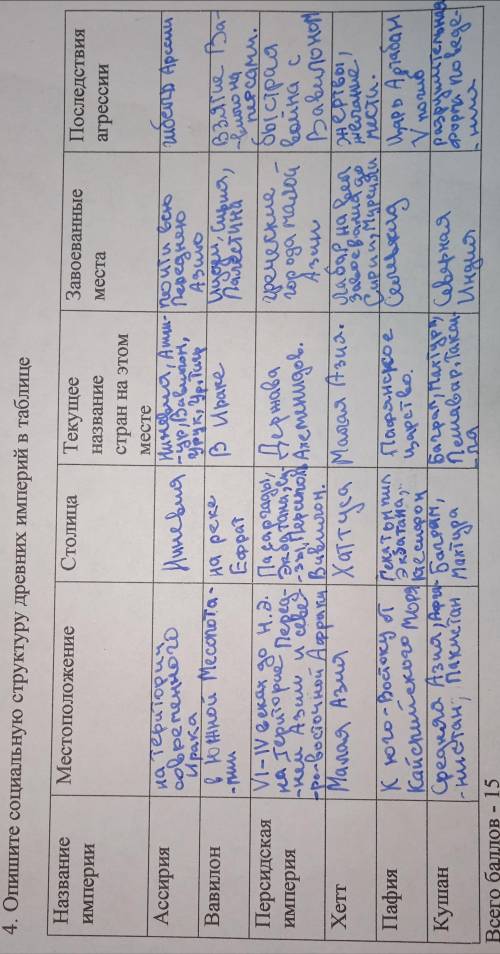 4. Опишите социальную структуру древних империй в таблице
Название
империи
Местоположение
Столица
Текущее
название
стран на этом
месте
Завоеванные
места
Последствия
агрессии
Ассирия
на територии
современного
Ирака
Ниневия
Ниневия, Ашш-
-ур, Вавилон,
Урук, Ур, Тир
почти всю
Переднюю
Азию
гибель Ассирии
Вавилон
в Южной Месопота-
-мии
на реке
Ефрат
В Ираке
Иудеи, Сирия,
Палестина
Взятие Ва-
-вилона
персами.
Персидская
империя
VI-IV веках до н.э.
на територие Перед-
-ней Азии и севе-
-ро-восточной Африки
Пасаргады,
Экбатана, Су-
-зы, Персеполь
Вавилон.
Держава
Ахеменидов.
греческие
города малой
Азии
быстрая
война с
Вавилоном
Хетт
Малая Азия
Хаттуса
Малая Азия.
Лабарна вёл
завоевания до
Сирии, Мурсили
жертвы,
желание
мести.
Пафия
К юго-востоку от
Каспийского моря
Экбатана,
Ктесифон
Парфянское
царство.
Селевкид
Царь Артабан
V погиб
Кушан
Средняя Азия, Афга-
-нистан, Пакистан
Баграм,
Матхура
Баграм, Матхура,
Пешавар, Такси-
-ла
Северная
Индия
разрушительная
форма поведе-
-ния
Всего баллов - 15